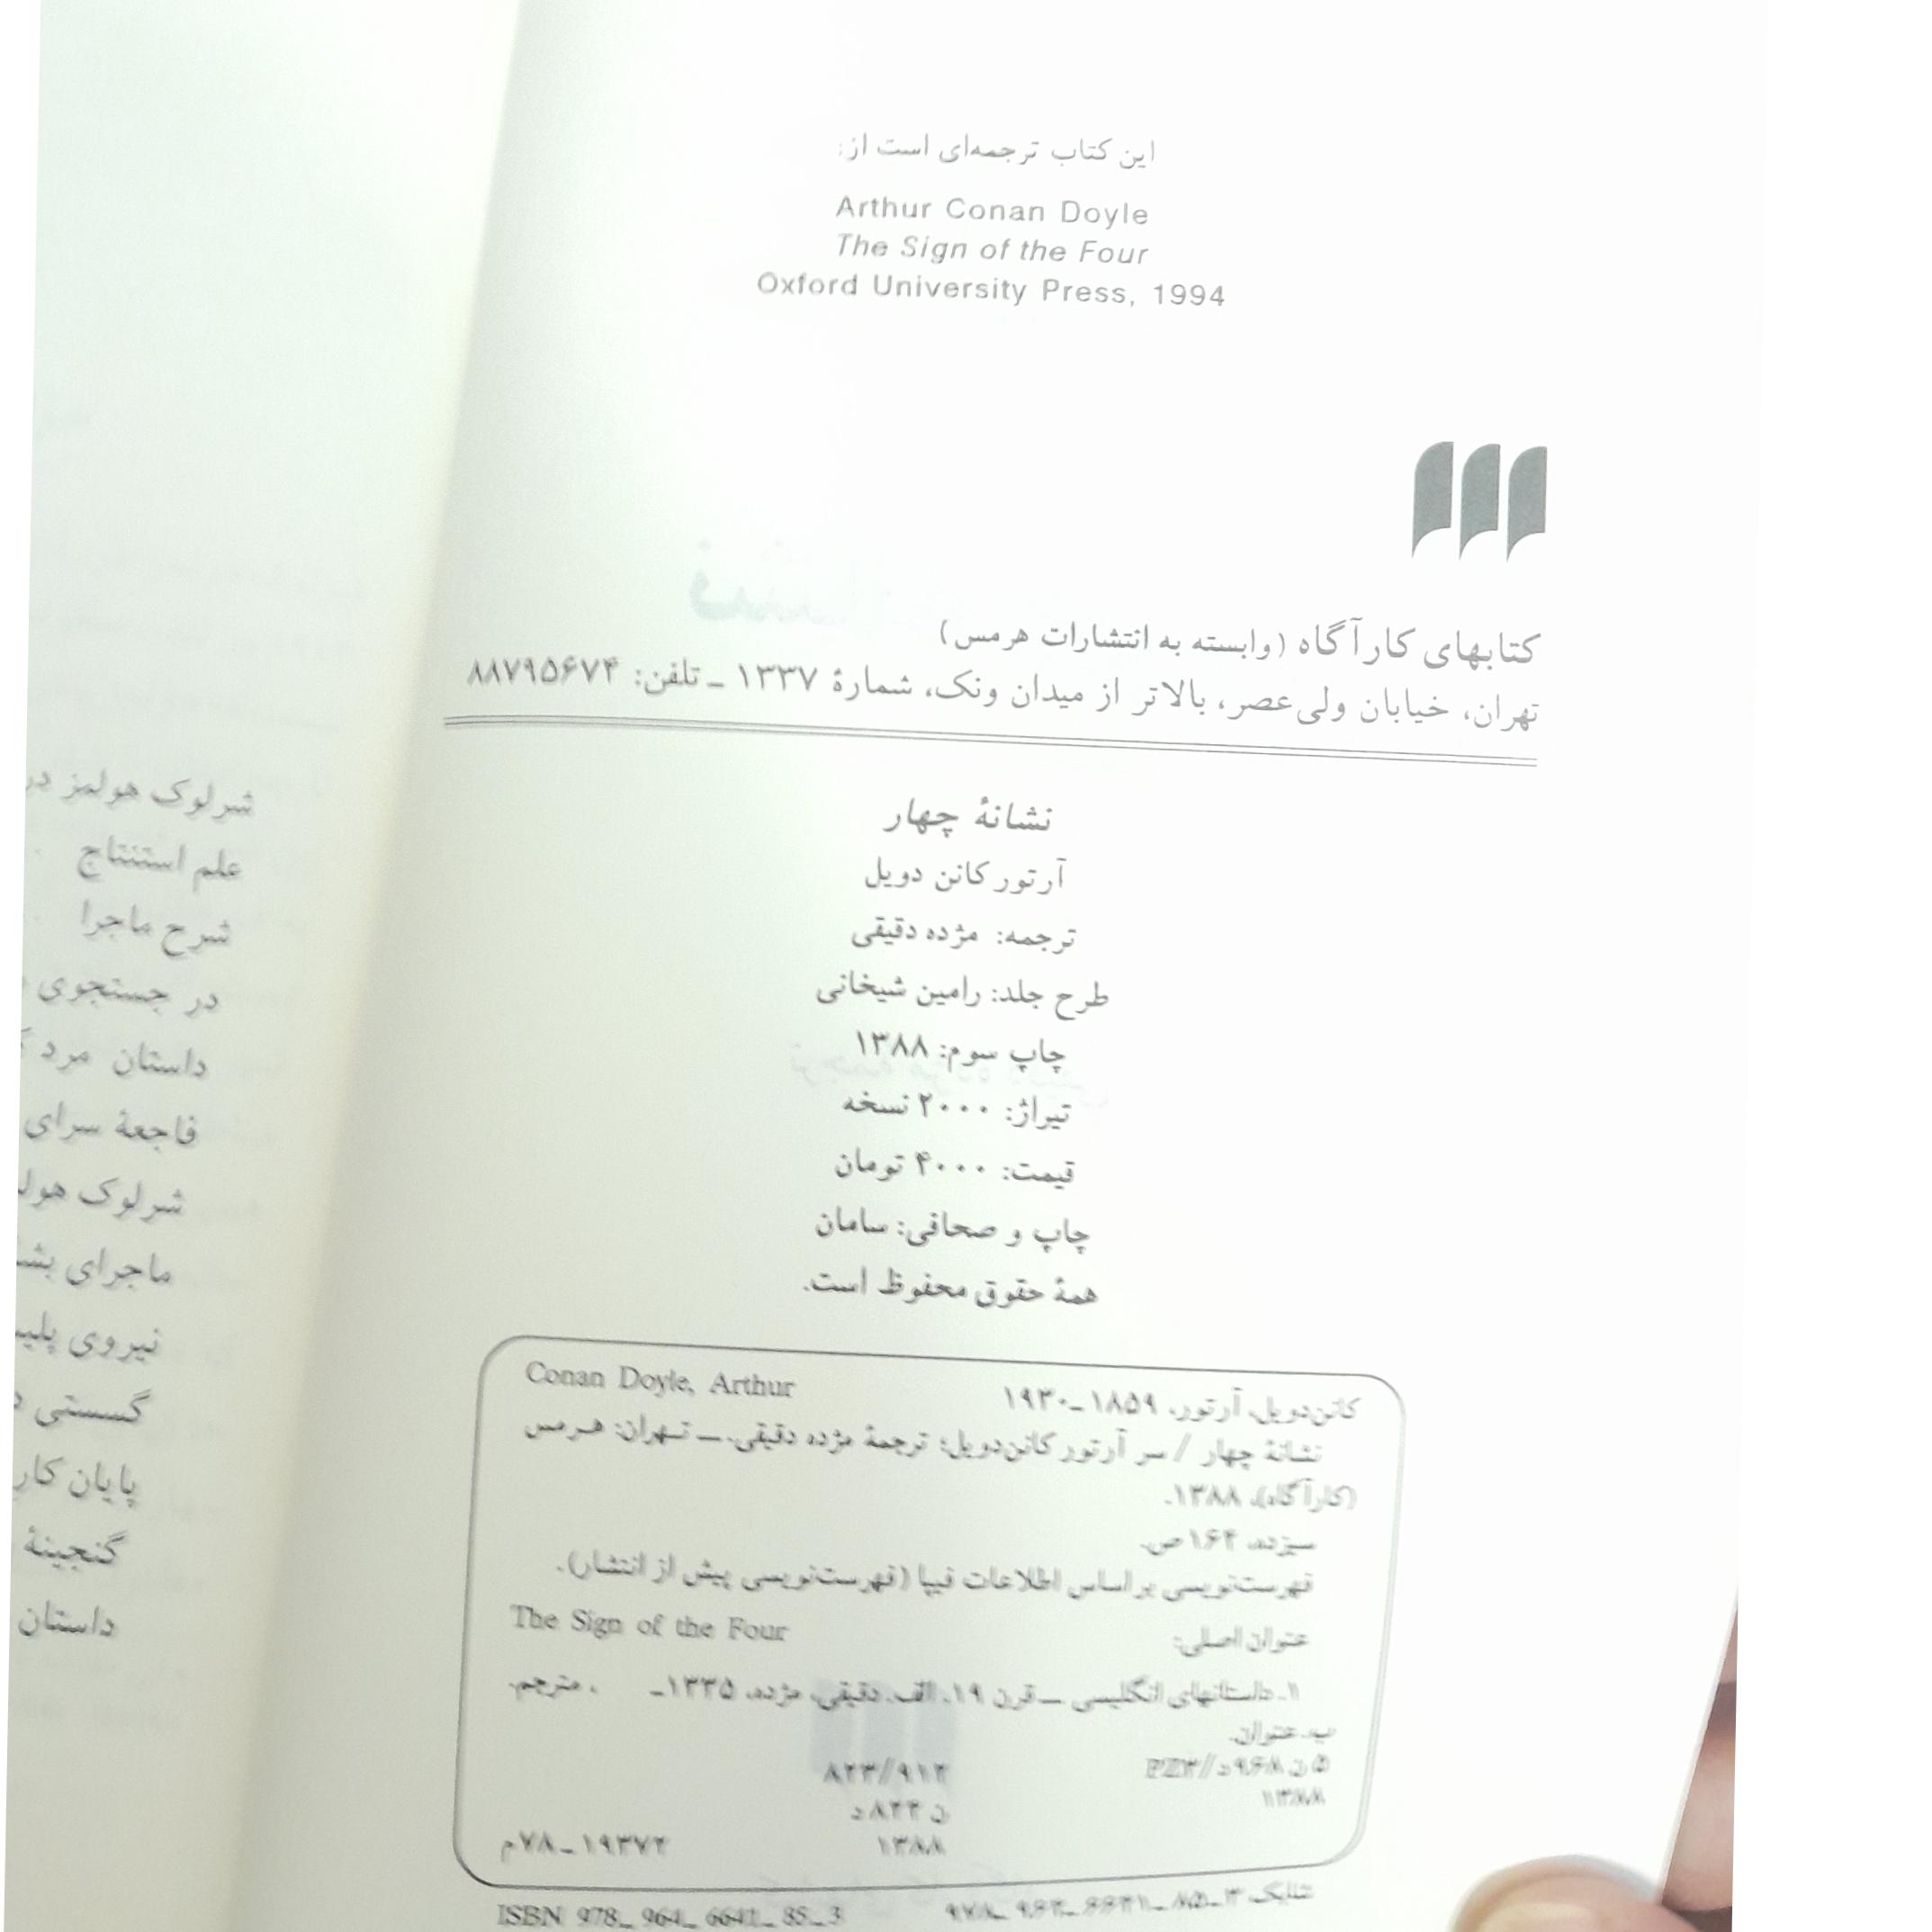 این کتاب ترجمه‌ای است از:
Arthur Conan Doyle
The Sign of the Four
Oxford University Press, 1994
کتابهای کارآگاه (وابسته به انتشارات هرمس)
تهران، خیابان ولی‌عصر، بالاتر از میدان ونک، شمارهٔ ۱۳۳۷ ـ تلفن: ۸۸۷۹۵۶۷۴
نشانهٔ چهار
آرتور کانن دویل
ترجمه: مژده دقیقی
طرح جلد: رامین شیخانی
چاپ سوم: ۱۳۸۸
تیراژ: ۲۰۰۰ نسخه
قیمت: ۴۰۰۰ تومان
چاپ و صحافی: سامان
همهٔ حقوق محفوظ است.
کانن‌دویل، آرتور، ۱۸۵۹ـ۱۹۳۰ Conan Doyle, Arthur
نشانهٔ چهار / سر آرتور کانن‌دویل؛ ترجمهٔ مژده دقیقی. ـ تهران: هرمس
(کارآگاه)، ۱۳۸۸.
سیزده، ۱۶۴ ص.
فهرست‌نویسی براساس اطلاعات فیپا (فهرست‌نویسی پیش از انتشار).
عنوان اصلی: The Sign of the Four
۱. داستانهای انگلیسی ـ قرن ۱۹. الف. دقیقی، مژده، ۱۳۳۵ـ ، مترجم.
ب. عنوان.
۵ن۹۶۸د/PZ۳ ۸۲۳/۹۱۲
۱۳۸۸ ن۸۲۲د
۱۳۸۸ ۱۹۳۷۲ـ۷۸م
شابک ISBN 978_ 964_ 6641_ 85_ 3
شرلوک هولمز در
علم استنتاج
شرح ماجرا
در جستجوی
داستان مرد
فاجعهٔ سرای
شرلوک هول
ماجرای بش
نیروی پلیـ
گسستی
پایان کار
گنجینهٔ
داستان